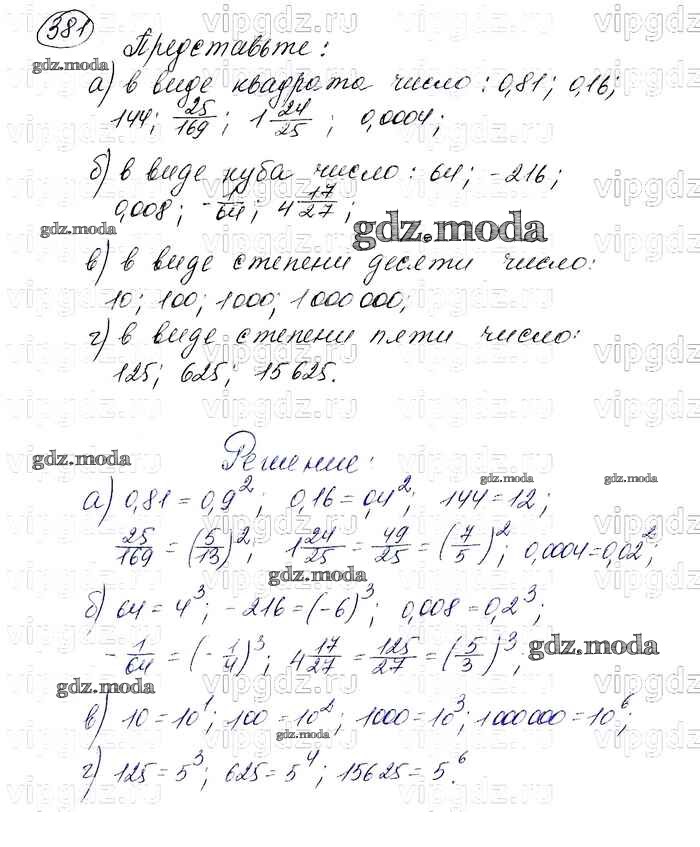 381
Представьте:
а) в виде квадрата число: 0,81; 0,16;
144; 25/169; 1 24/25; 0,0004;
б) в виде куба число: 64; -216;
0,008; -1/64; 4 17/27;
в) в виде степени десяти число:
10; 100; 1000; 1 000 000;
г) в виде степени пяти число:
125; 625; 15 625.
Решение:
а) 0,81 = 0,9²; 0,16 = 0,4²; 144 = 12;
25/169 = (5/13)²; 1 24/25 = 49/25 = (7/5)²; 0,0004 = 0,02²;
б) 64 = 4³; -216 = (-6)³; 0,008 = 0,2³;
-1/64 = (-1/4)³; 4 17/27 = 125/27 = (5/3)³;
в) 10 = 10¹; 100 = 10²; 1000 = 10³; 1 000 000 = 10⁶;
г) 125 = 5³; 625 = 5⁴; 15625 = 5⁶.
gdz.moda
gdz.moda
gdz.moda
gdz.moda
gdz.moda
gdz.moda
gdz.moda
gdz.moda
gdz.moda
gdz.moda
vipgdz.ru